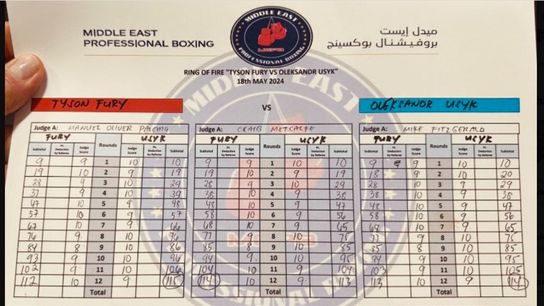 MIDDLE EAST
PROFESSIONAL BOXING
MIDDLE EAST
PROFESSIONAL BOXING
ميدل إيست
بروفيشنال بوكسينج
RING OF FIRE "TYSON FURY VS OLEKSANDR USYK"
18th MAY 2024
TYSON FURY
VS
OLEKSANDR USYK
Judge A: MANUEL OLIVER PALOMO
FURY USYK
Subtotal Pt. Deduction by Referee Judge Score Rounds Judge Score Pt. Deduction by Referee Subtotal
9 9 1 10 10
19 10 2 9 19
28 9 3 10 29
37 9 4 10 39
47 10 5 9 48
57 10 6 9 57
67 10 7 9 66
76 9 8 10 76
84 8 9 10 86
93 9 10 10 96
102 9 11 10 106
112 10 12 9 115
Total
Judge A: CRAIG METCALFE
FURY USYK
Subtotal Pt. Deduction by Referee Judge Score Rounds Judge Score Pt. Deduction by Referee Subtotal
9 9 1 10 10
19 10 2 9 19
28 9 3 10 29
4
5
6
7
8
9
94 9 10 10 95
104 10 11 9 104
114 10 12 9 113
Total
Judge A: MIKE FITZGERALD
FURY USYK
Subtotal Pt. Deduction by Referee Judge Score Rounds Judge Score Pt. Deduction by Referee Subtotal
9 9 1 10 10
18 9 2 10 20
28 10 3 9 29
38 10 4 9 38
48 10 5 9 47
58 10 6 9 56
10 7 9 65
77 9 8 10 75
85 8 9 10 85
94 9 10 10 95
103 9 11 10 105
113 10 12 9 114
Total